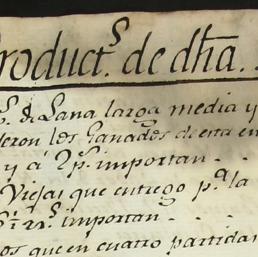 Product.s de dha.
s. di Lana larga media y
dieron los Ganados de esta en
y á 2 p.s importan
Viejas que entrego p.a la
importan
os que en cuatro partidas